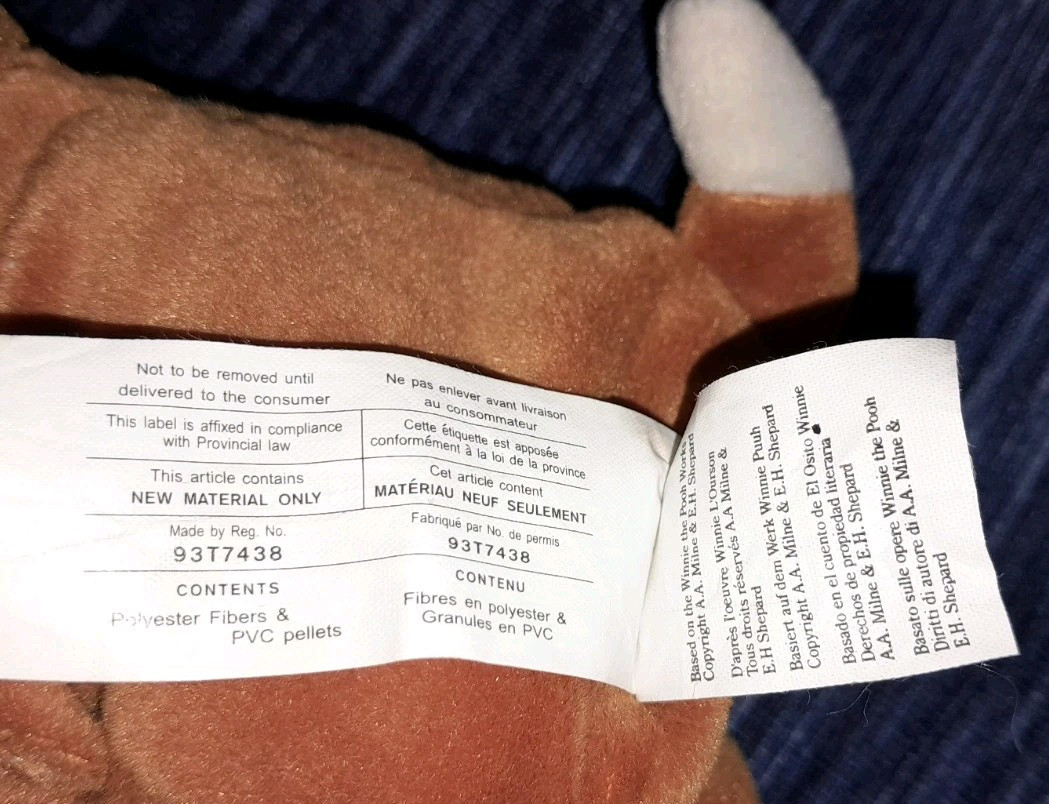 Not to be removed until
delivered to the consumer
Ne pas enlever avant livraison
au consommateur
This label is affixed in compliance
with Provincial law
Cette étiquette est apposée
conformément à la loi de la province
This article contains
NEW MATERIAL ONLY
Cet article content
MATÉRIAU NEUF SEULEMENT
Made by Reg. No.
93T7438
Fabriqué par No. de permis
93T7438
CONTENTS
Polyester Fibers &
PVC pellets
CONTENU
Fibres en polyester &
Granules en PVC
Based on the Winnie the Pooh Works
Copyright A.A. Milne & E.H. Shepard
D'après l'oeuvre Winnie L'Ourson
Tous droits réservés A.A Milne &
E.H Shepard
Basiert auf dem Werk Winnie Puuh
Copyright A.A. Milne & E.H. Shepard
Copyright de El cuento de El Osito Winnie
Basado en el cuento de El Osito Winnie
Derechos de propiedad literaria
A.A. Milne & E.H. Shepard
Basato sulle opere Winnie the Pooh
Diritti di autore di A.A. Milne &
E.H. Shepard